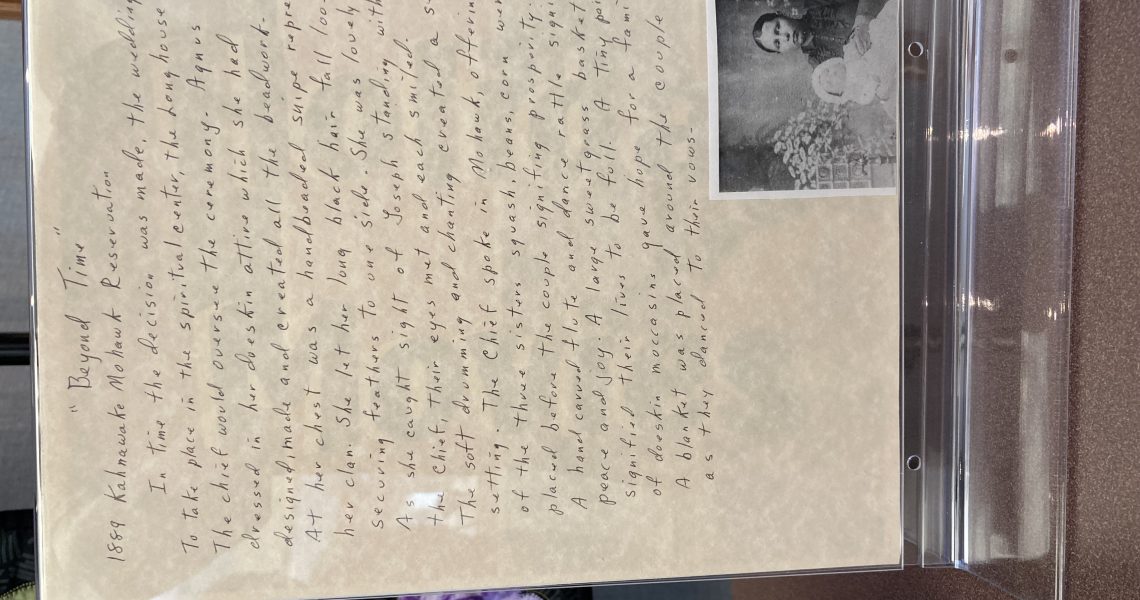 "Beyond Time"
1889 Kahnawake Mohawk Reservation
In time the decision was made, the wedding
To take place in the spiritual center, the Longhouse
The chief would oversee the ceremony. Agnus
dressed in her doeskin attire which she had
designed, made and created all the beadwork.
At her chest was a handbeaded snipe repre
her clan. She let her long black hair fall loo
securing feathers to one side. She was lovely
As she caught sight of Joseph standing with
the chief, their eyes met and each smiled.
The soft drumming and chanting created a s
setting. The Chief spoke in Mohawk, offerin
of the three sisters squash, beans, corn wer
placed before the couple signifing prosperity.
A hand carved flute and dance rattle signi
peace and joy. A large sweetgrass basket
signified their lives to be full. A tiny pai
of doeskin moccasins gave hope for a fami
A blanket was placed around the couple
as they danced to their vows-